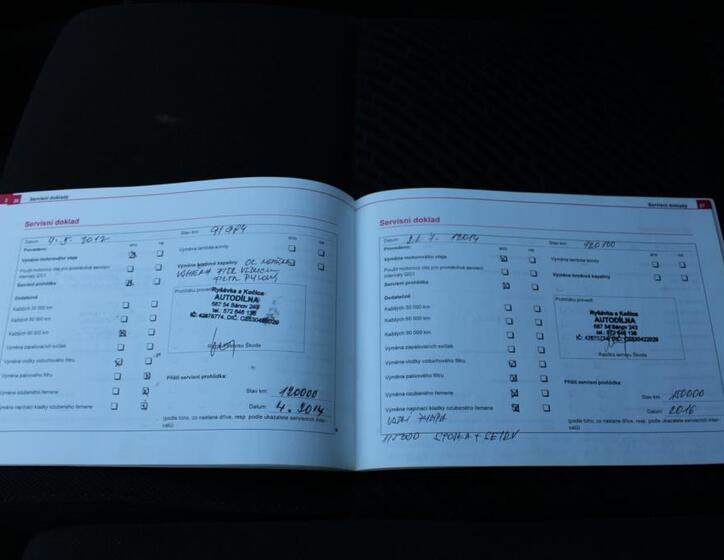 Servisní doklady
Servisní doklad
Datum: 4. 8. 2012
Stav km:
Provedeno:
ano
ne
ano
ne
Výměna motorového oleje
Výměna lambda-sondy
Použit motorový olej pro proměnné servisní
intervaly QG1
Výměna brzdové kapaliny
Servisní prohlídka
Dodatečně
Každých 30 000 km
Každých 60 000 km
Každých 90 000 km
Výměna zapalovacích svíček
Výměna vložky vzduchového filtru
Výměna palivového filtru
Výměna ozubeného řemene
Výměna napínací kladky ozubeného řemene
Prohlídku provedl:
Ryšávka a Kočica
AUTODÍLNA
687 54 Bánov 243
tel.: 572 646 136
Razítko servisu Škoda
Příští servisní prohlídka:
Stav km: 120000
Datum: 4. 2014
(podle toho, co nastane dříve, resp. podle ukazatele servisních intervalů)
Servisní doklady
27
Servisní doklad
Datum:
2014
Stav km:
Provedeno:
ano
ne
ano
ne
Výměna motorového oleje
Výměna lambda-sondy
Použit motorový olej pro proměnné servisní
intervaly QG1
Výměna brzdové kapaliny
Servisní prohlídka
Dodatečně
Každých 30 000 km
Každých 60 000 km
Každých 90 000 km
Výměna zapalovacích svíček
Výměna vložky vzduchového filtru
Výměna palivového filtru
Výměna ozubeného řemene
Výměna napínací kladky ozubeného řemene
Prohlídku provedl:
Ryšávka a Kočica
AUTODÍLNA
687 54 Bánov 243
tel.: 572 646 136
Razítko servisu Škoda
Příští servisní prohlídka:
Stav km: 150000
Datum: 2016
(podle toho, co nastane dříve, resp. podle ukazatele servisních intervalů)